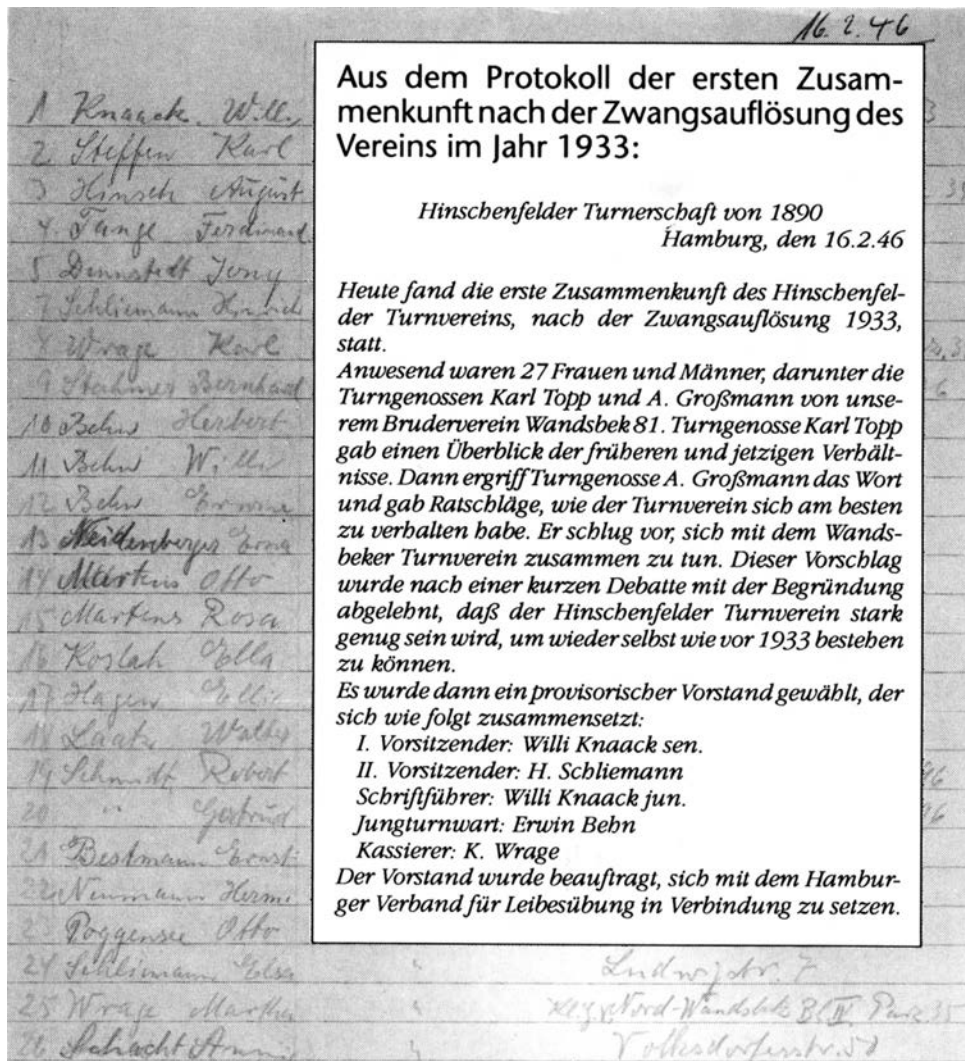 16. 2. 46
Aus dem Protokoll der ersten Zusam-
menkunft nach der Zwangsauflösung des
Vereins im Jahr 1933:
Hinschenfelder Turnerschaft von 1890
Hamburg, den 16.2.46
Heute fand die erste Zusammenkunft des Hinschenfel-
der Turnvereins, nach der Zwangsauflösung 1933,
statt.
Anwesend waren 27 Frauen und Männer, darunter die
Turngenossen Karl Topp und A. Großmann von unse-
rem Bruderverein Wandsbek 81. Turngenosse Karl Topp
gab einen Überblick der früheren und jetzigen Verhält-
nisse. Dann ergriff Turngenosse A. Großmann das Wort
und gab Ratschläge, wie der Turnverein sich am besten
zu verhalten habe. Er schlug vor, sich mit dem Wands-
beker Turnverein zusammen zu tun. Dieser Vorschlag
wurde nach einer kurzen Debatte mit der Begründung
abgelehnt, daß der Hinschenfelder Turnverein stark
genug sein wird, um wieder selbst wie vor 1933 bestehen
zu können.
Es wurde dann ein provisorischer Vorstand gewählt, der
sich wie folgt zusammensetzt:
I. Vorsitzender: Willi Knaack sen.
II. Vorsitzender: H. Schliemann
Schriftführer: Willi Knaack jun.
Jungturnwart: Erwin Behn
Kassierer: K. Wrage
Der Vorstand wurde beauftragt, sich mit dem Hambur-
ger Verband für Leibesübung in Verbindung zu setzen.
1 Knaack Willi
2 Steffen Karl
3 Hinsch August
4. Tange Ferdinand
5 Dennstedt
7 Schliemann Hinrich
8 Wrage Karl
9 Stahmer Bernhard
10 Behn Herbert
11 Behn Willi
12 Behn
13 Neidenberger Erna
14 Martens Otto
15 Martens Rosa
16 Koslah Ella
17 Hagen Ellie
18 Laatz Walter
19 Schmidt Robert
20 " Gertrud
21 Bestmann Ernst
22 Neumann
23 Poggensee Otto
24 Schliemann Elsa " Ludwigstr. 7
25 Wrage Martha Nord-Wandsbek Parz 35
26 Schacht Volksdorferstr.